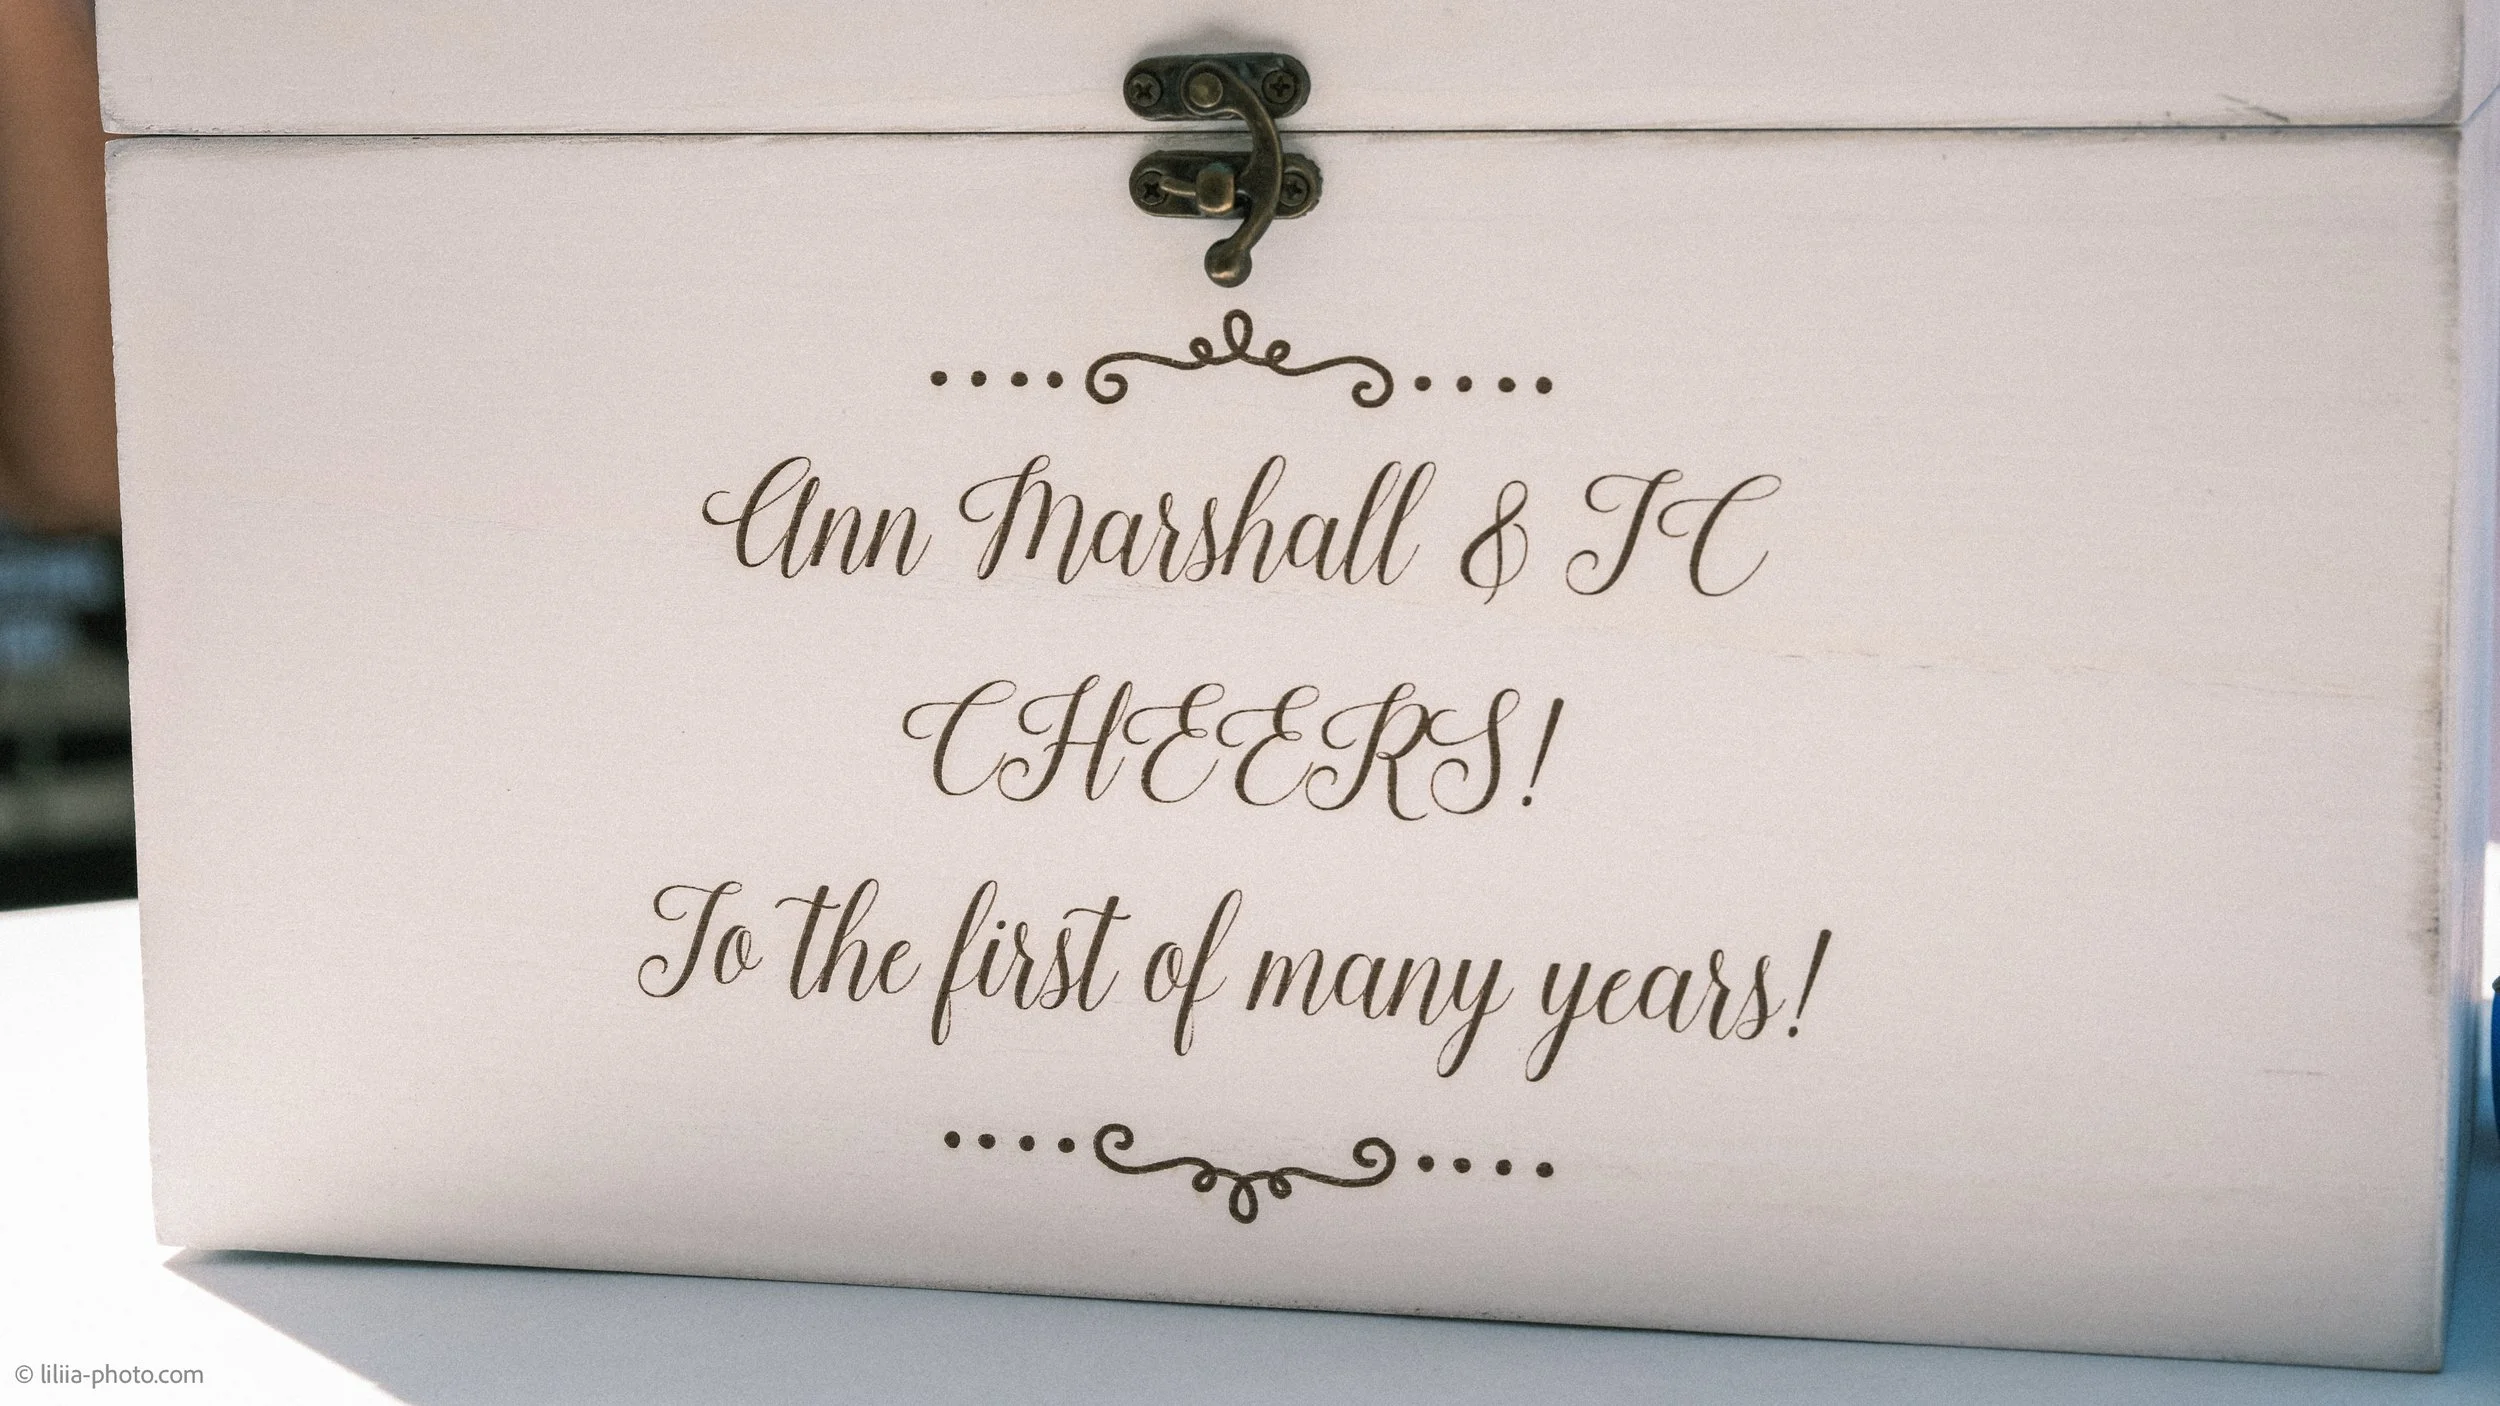 Ann Marshall & TC
CHEERS!
To the first of many years!
© liliia-photo.com